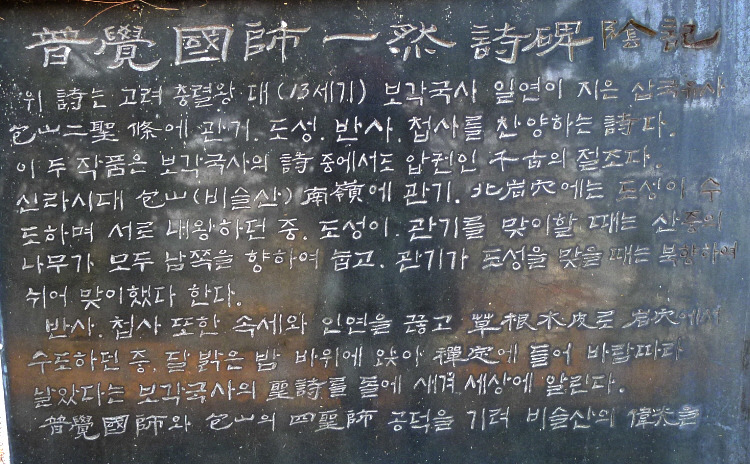 普覺國師一然詩碑陰記
위 詩는 고려 충렬왕 대 (13세기) 보각국사 일연이 지은 삼국유사
包山二聖 條에 관기. 도성. 반사. 첩사를 찬양하는 詩다.
이 두 작품은 보각국사의 詩 중에서도 압권인 千古의 절조다.
신라시대 包山(비슬산) 南嶺에 관기. 北岩穴에는 도성이 수
도하며 서로 내왕하던 중. 도성이. 관기를 맞이할 때는 산중의
나무가 모두 남쪽을 향하여 눕고. 관기가 도성을 맞을 때는 북향하여
쉬어 맞이했다 한다.
반사. 첩사 또한 속세와 인연을 끊고 草根木皮로 岩穴에서
수도하던 중. 달 밝은 밤 바위에 앉아 禪定에 들어 바람따라
날았다는 보각국사의 聖詩를 돌에 새겨 세상에 알린다.
普覺國師와 包山의 四聖師 공덕을 기려 비슬산의 偉光을